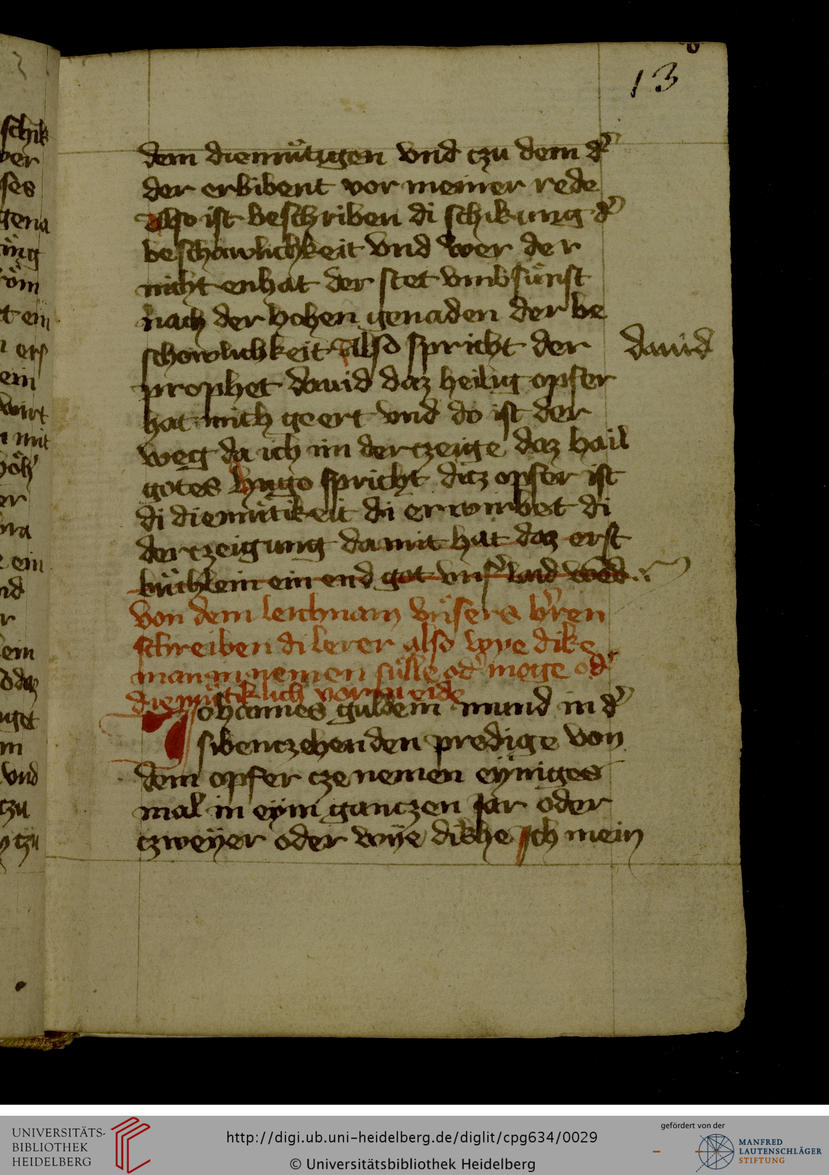 13
dem diemütigen vnd czu dem d'
der erbibent vor meiner rede
also ist beschriben di schikung d'
beschowlichkeit vnd wer der
nicht enhat der stet vmbsünst
nach der hohen genaden der be
schowlichkeit Also spricht der
dauid
prophet dauid daz heilig opfer
hat mich geert vnd do ist der
weg da ich im dertzeige daz hail
gotes hugo spricht ditz opfer ist
di diemütikeit di erwirbet di
dertzeigung damit hat daz erst
büchlein ein end got vns'
von dem leichnam vnsers h'ren
schreiben di lerer also wye dike
man in nemen sülle od' moge od'
diemütiklich vormeide
Johannes guldein mund in d'
sibenczehenden predige von
dem opfer cze nemen eyniges
mal in eym ganczen Jar oder
czweyer oder wye dikhe Ich mein
schik
ver
ses
gena
t ein
ein
wirt
mit
er
ein
nd
r
em
m
vnd
czu
UNIVERSITÄTS-
BIBLIOTHEK
HEIDELBERG
http://digi.ub.uni-heidelberg.de/diglit/cpg634/0029
© Universitätsbibliothek Heidelberg
gefördert von der
MANFRED
LAUTENSCHLÄGER
STIFTUNG